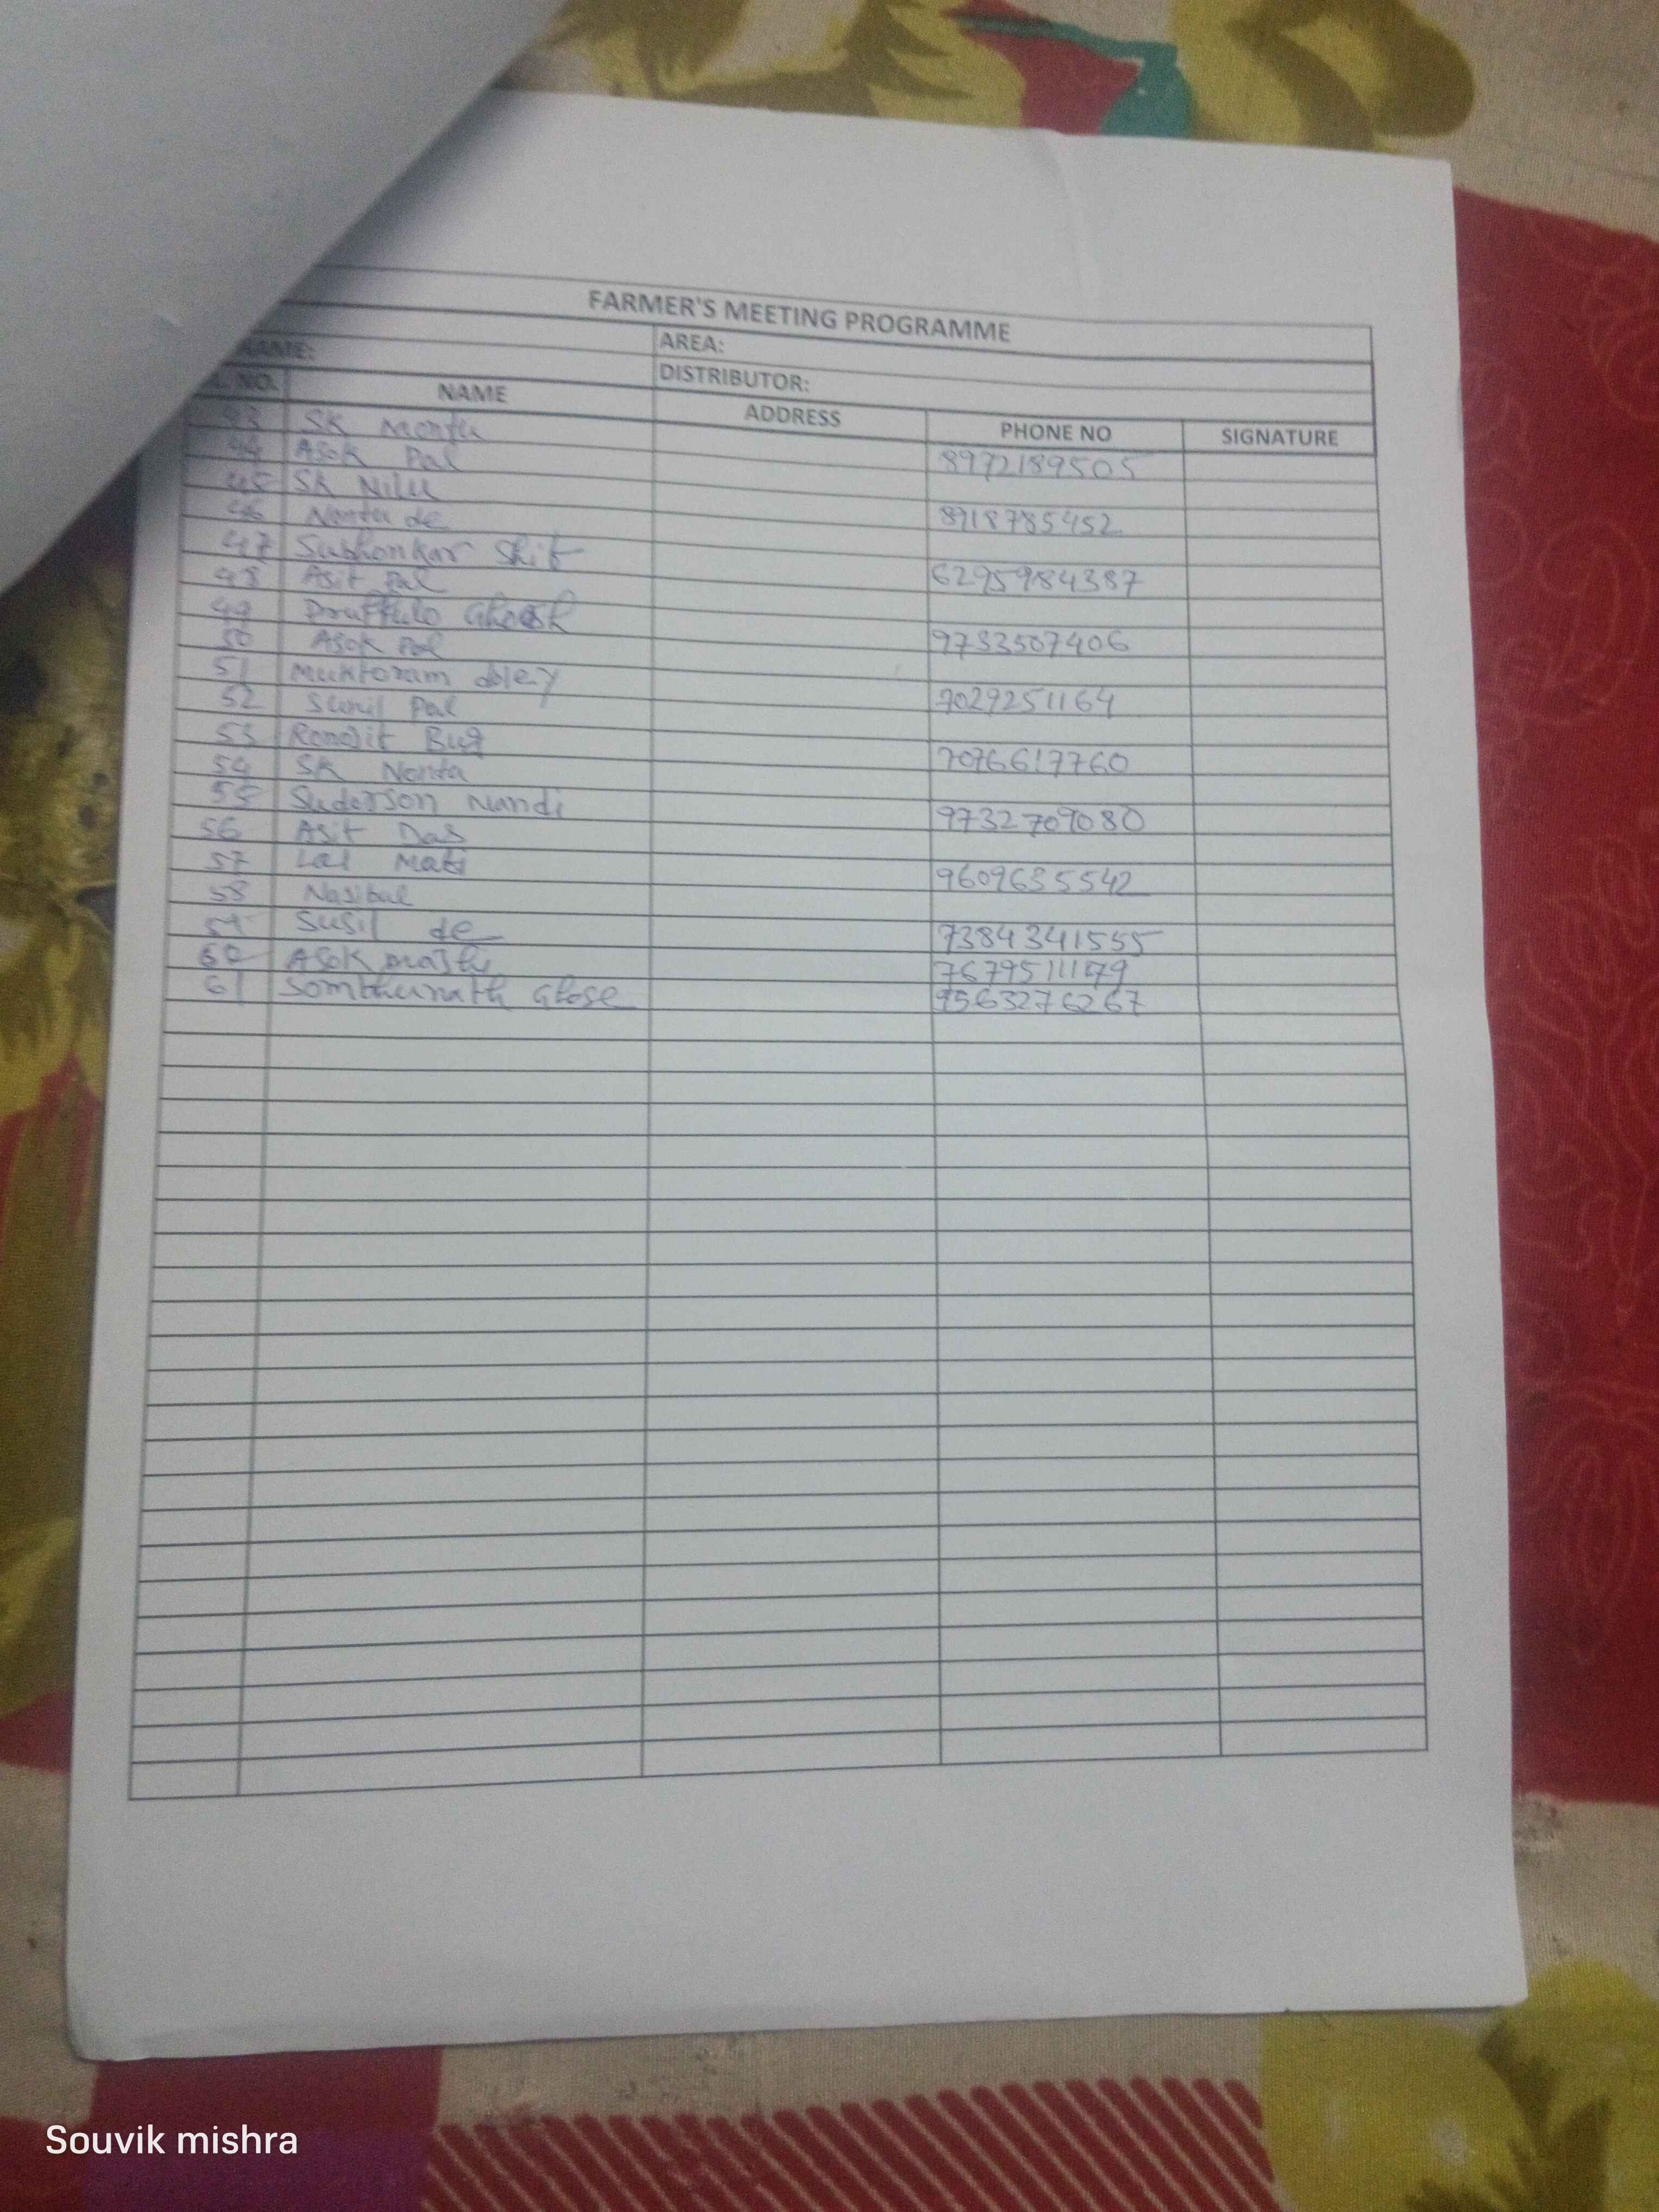 FARMER'S MEETING PROGRAMME
NAME: AREA:
DISTRIBUTOR:
L NO. NAME ADDRESS PHONE NO SIGNATURE
43 SK Montu 8972189505
44 Asok Pal
45 SK Nilu 8918785452
46 Nantu de
47 Subhonkar Shit 6295984387
48 Asit Pal
49 Druffulo Ghosh 9733507406
50 Asok Pal
51 Muktoram doley 7029251164
52 Sunil Pal
53 Ronojit Bug 7076617760
54 SK Nonta
55 Suderson Nandi 9732709080
56 Asit Das
57 Lal Mati 9609635542
58 Nasibul
59 Susil de 7384341555
60 Asok maity
61 Sombhunath Ghose 9563276267
Souvik mishra